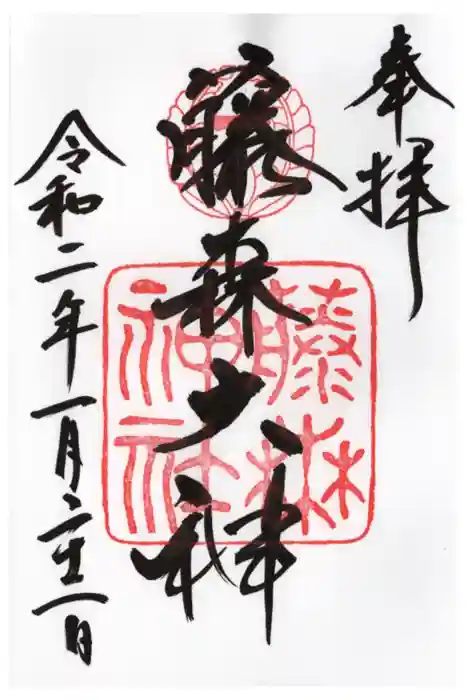 奉拝
藤森大神
令和二年一月二十一日
藤森
神社